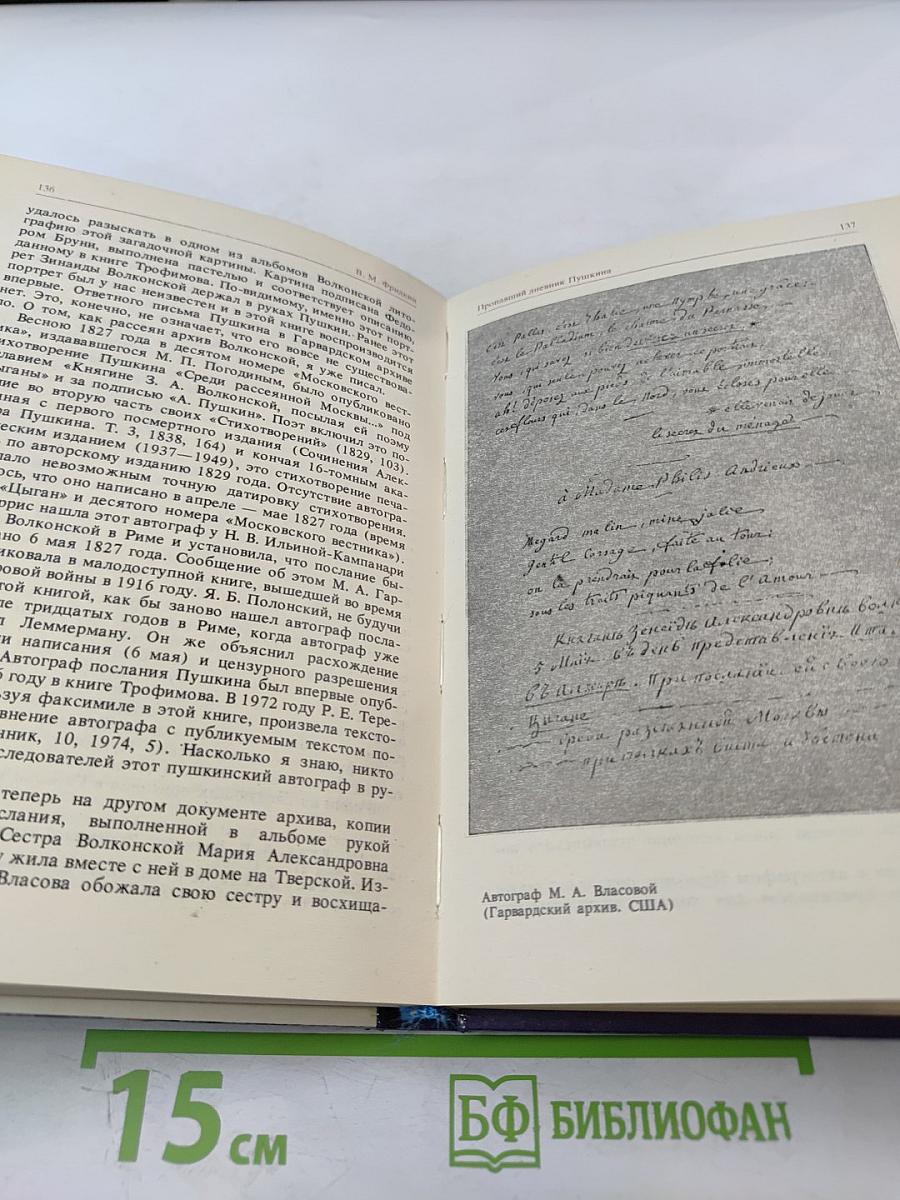 136
В. М. Фридкин
удалось разыскать в одном из альбомов Волконской лито-
графию этой загадочной картины. Картина подписана Федо-
ром Бруни, выполнена пастелью и соответствует описанию,
данному в книге Трофимова. По-видимому, именно этот порт-
рет Зинаиды Волконской держал в руках Пушкин. Ранее этот
портрет был у нас неизвестен и в этой книге воспроизводится
впервые. Ответного письма Пушкина в Гарвардском архиве
нет. Это, конечно, не означает, что его вовсе не существова-
ло. О том, как рассеян архив Волконской, я уже писал.
Весною 1827 года в десятом номере «Московского вест-
ника», издававшегося М. П. Погодиным, было опубликовано
стихотворение Пушкина «Среди рассеянной Москвы...» под
славием «Княгине З. А. Волконской, посылая ей поэму
ыганы» и за подписью «А. Пушкин». Поэт включил это по-
ние во вторую часть своих «Стихотворений» (1829, 103).
иная с первого посмертного издания (Сочинения Алек-
ра Пушкина. Т. 3, 1838, 164) и кончая 16-томным ака-
ческим изданием (1937—1949), это стихотворение печа-
по авторскому изданию 1829 года. Отсутствие автогра-
лало невозможным точную датировку стихотворения.
ось, что оно написано в апреле — мае 1827 года (время
«Цыган» и десятого номера «Московского вестника»).
ррис нашла этот автограф у Н. В. Ильиной-Кампанари
Волконской в Риме и установила, что послание бы-
ано 6 мая 1827 года. Сообщение об этом М. А. Гар-
иковала в малодоступной книге, вышедшей во время
ровой войны в 1916 году. Я. Б. Полонский, не будучи
той книгой, как бы заново нашел автограф посла-
ле тридцатых годов в Риме, когда автограф уже
л Леммерману. Он же объяснил расхождение
и написания (6 мая) и цензурного разрешения
Автограф послания Пушкина был впервые опуб-
6 году в книге Трофимова. В 1972 году Р. Е. Тере-
ьзуя факсимиле в этой книге, произвела тексто-
внение автографа с публикуемым текстом по-
нник, 10, 1974, 5). Насколько я знаю, никто
следователей этот пушкинский автограф в ру-
теперь на другом документе архива, копии
слания, выполненной в альбоме рукой
Сестра Волконской Мария Александровна
у жила вместе с ней в доме на Тверской. Из-
Власова обожала свою сестру и восхища-
Пропавший дневник Пушкина
137
C'est Pallas, c'est Thalie, une nymphe, une grace:
c'est le Palladium, le charme du Parnasse,
vous qui seul pouvez achever ce portrait,
ah! déposez aux pieds de l'aimable immortelle
ces fleurs qui, dans le Nord, vous écloses pour elle.
le secret du menagal
à Madame Philis Andrieux
Regard malin, mine jolie,
gentil corsage, faite au tour;
on la prendrait pour la folie
sous les traits piquants de l'Amour
Княгинѣ Зенеидѣ Александровнѣ волк
5 Маія. въ день представленія
въ Послании ей своего
Цигане
среди разсѣянной Москвы
при толкахъ виста и бостона
Автограф М. А. Власовой
(Гарвардский архив. США)
15 см
БФ БИБЛИОФАН